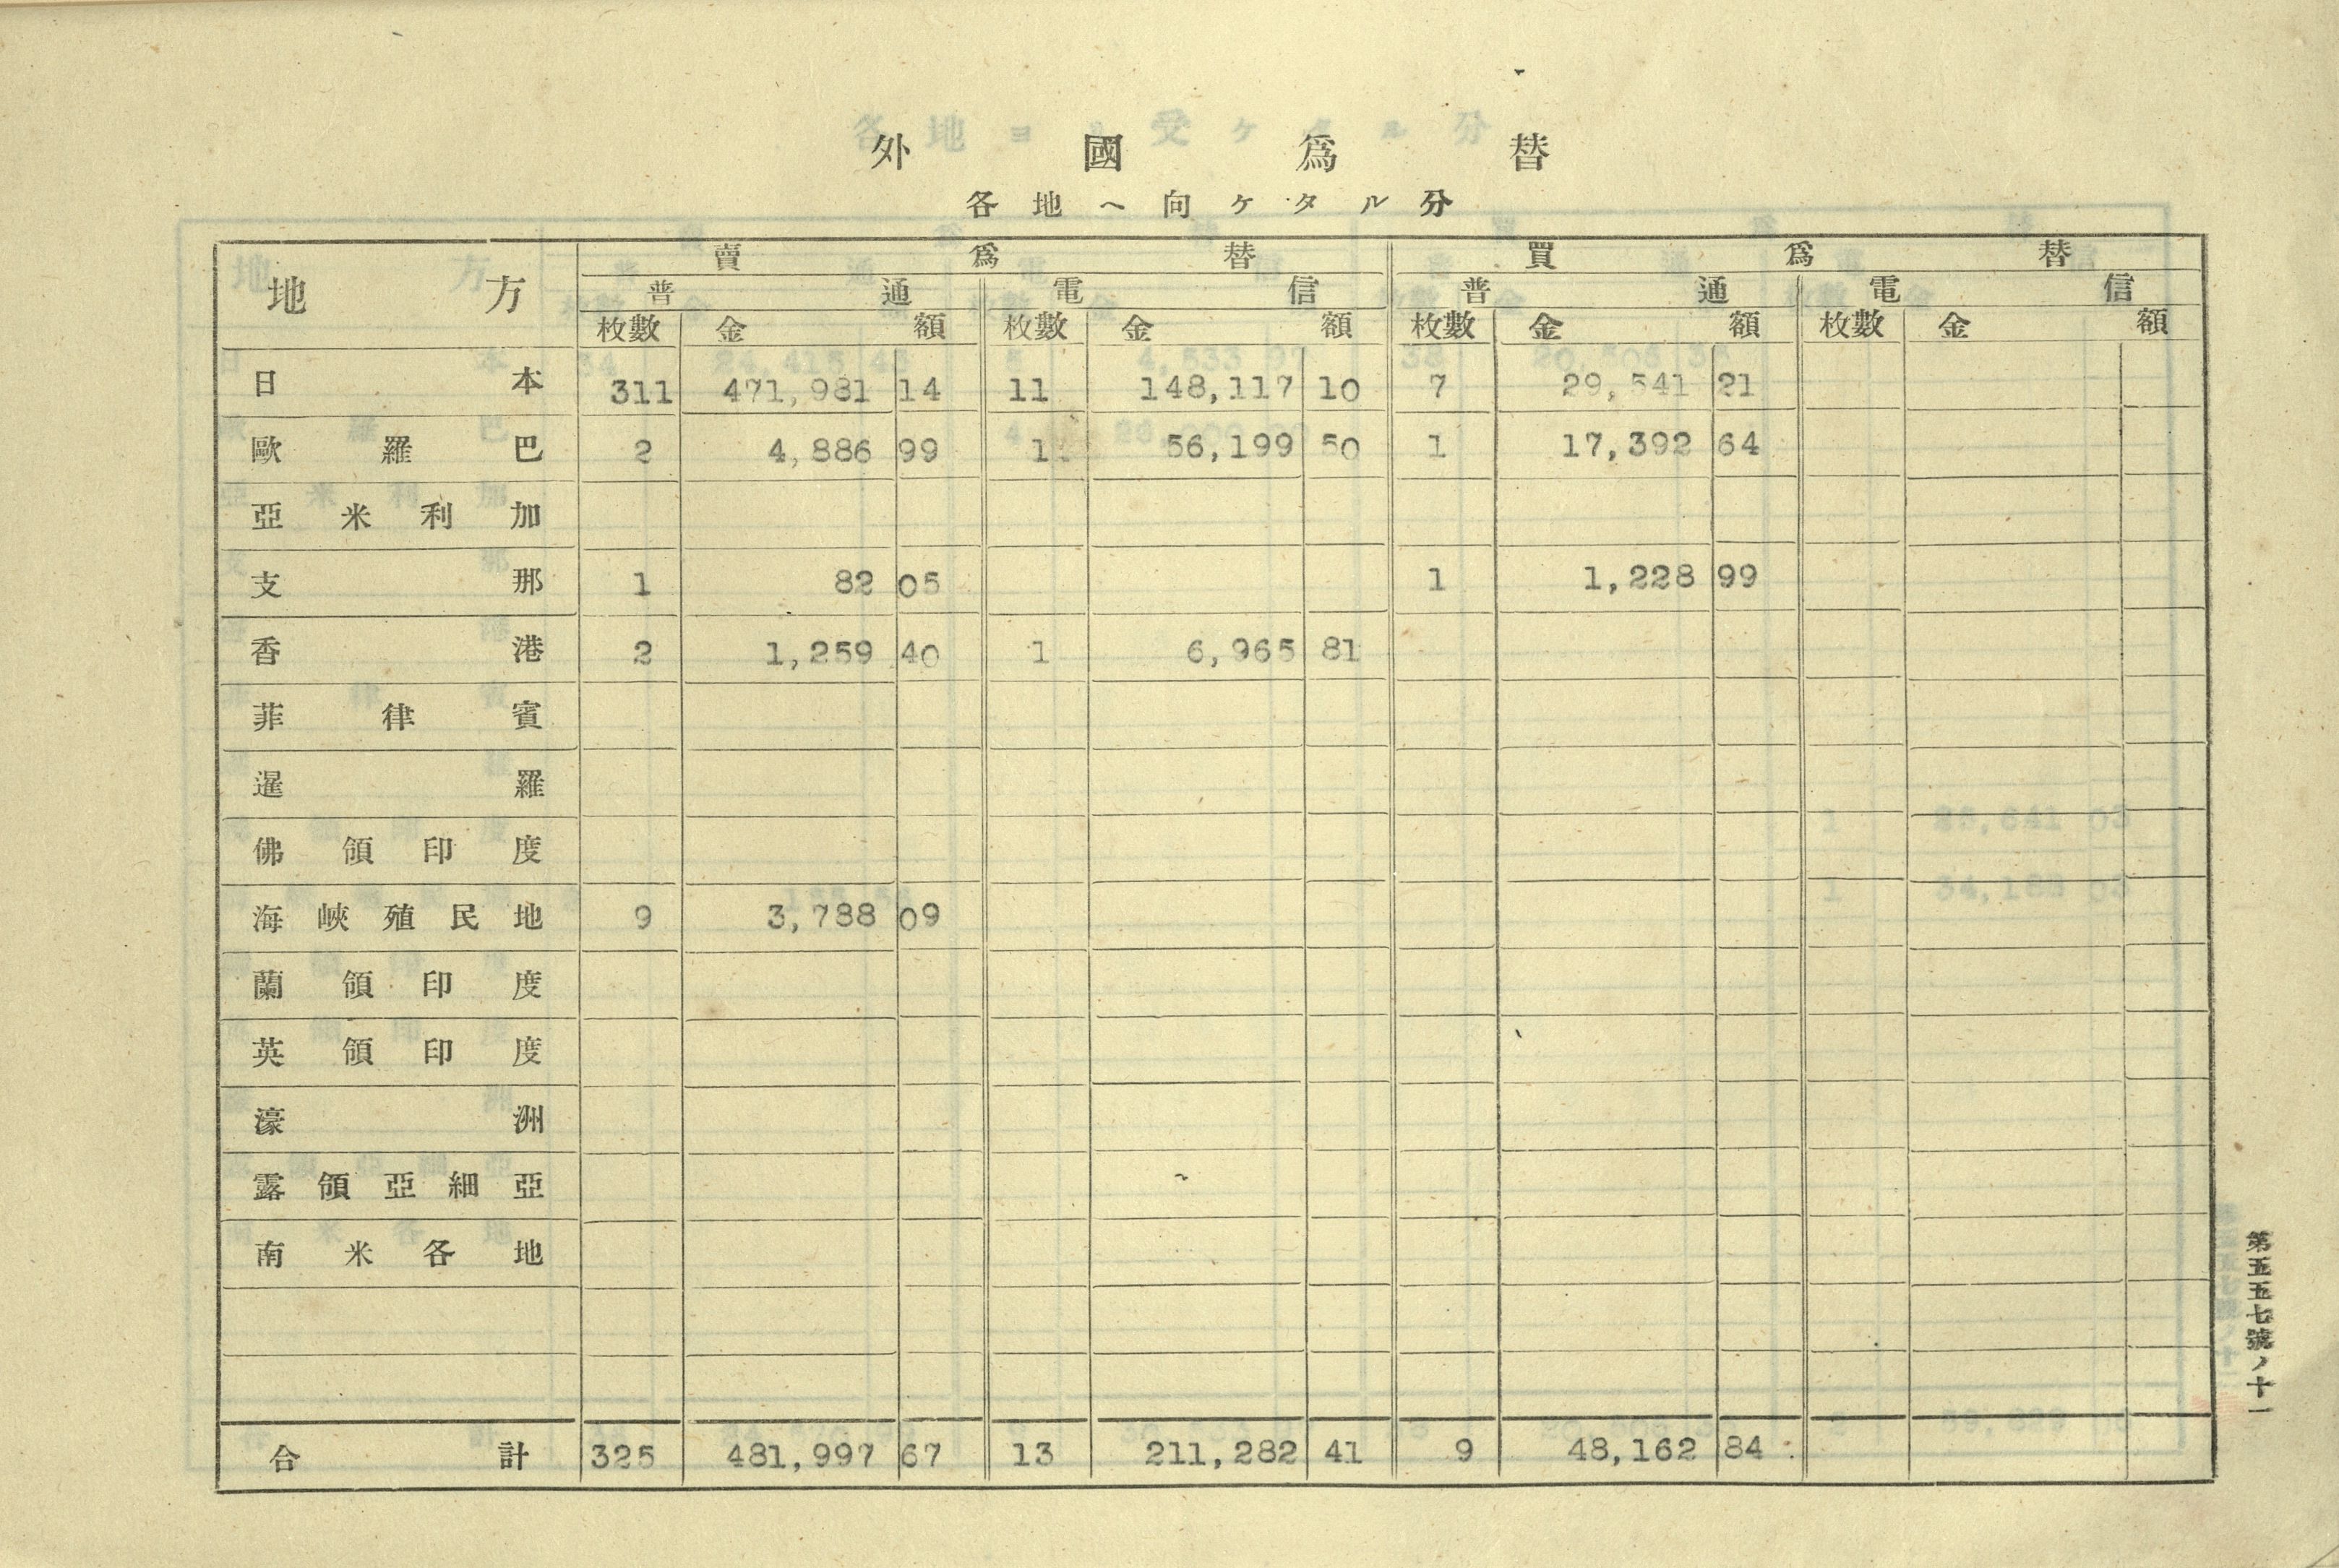 外國爲替
各地ヘ向ケタル分
地方 賣爲替 買爲替
普通 電信 普通 電信
枚數 金額 枚數 金額 枚數 金額 枚數 金額
日本 311 471,981 14 11 148,117 10 7 29,541 21
歐羅巴 2 4,886 99 1 56,199 50 1 17,392 64
亞米利加
支那 1 82 05 1 1,228 99
香港 2 1,259 40 1 6,965 81
菲律賓
暹羅
佛領印度
海峽殖民地 9 3,788 09
蘭領印度
英領印度
濠洲
露領亞細亞
南米各地
合計 325 481,997 67 13 211,282 41 9 48,162 84
第五五七號ノ十一